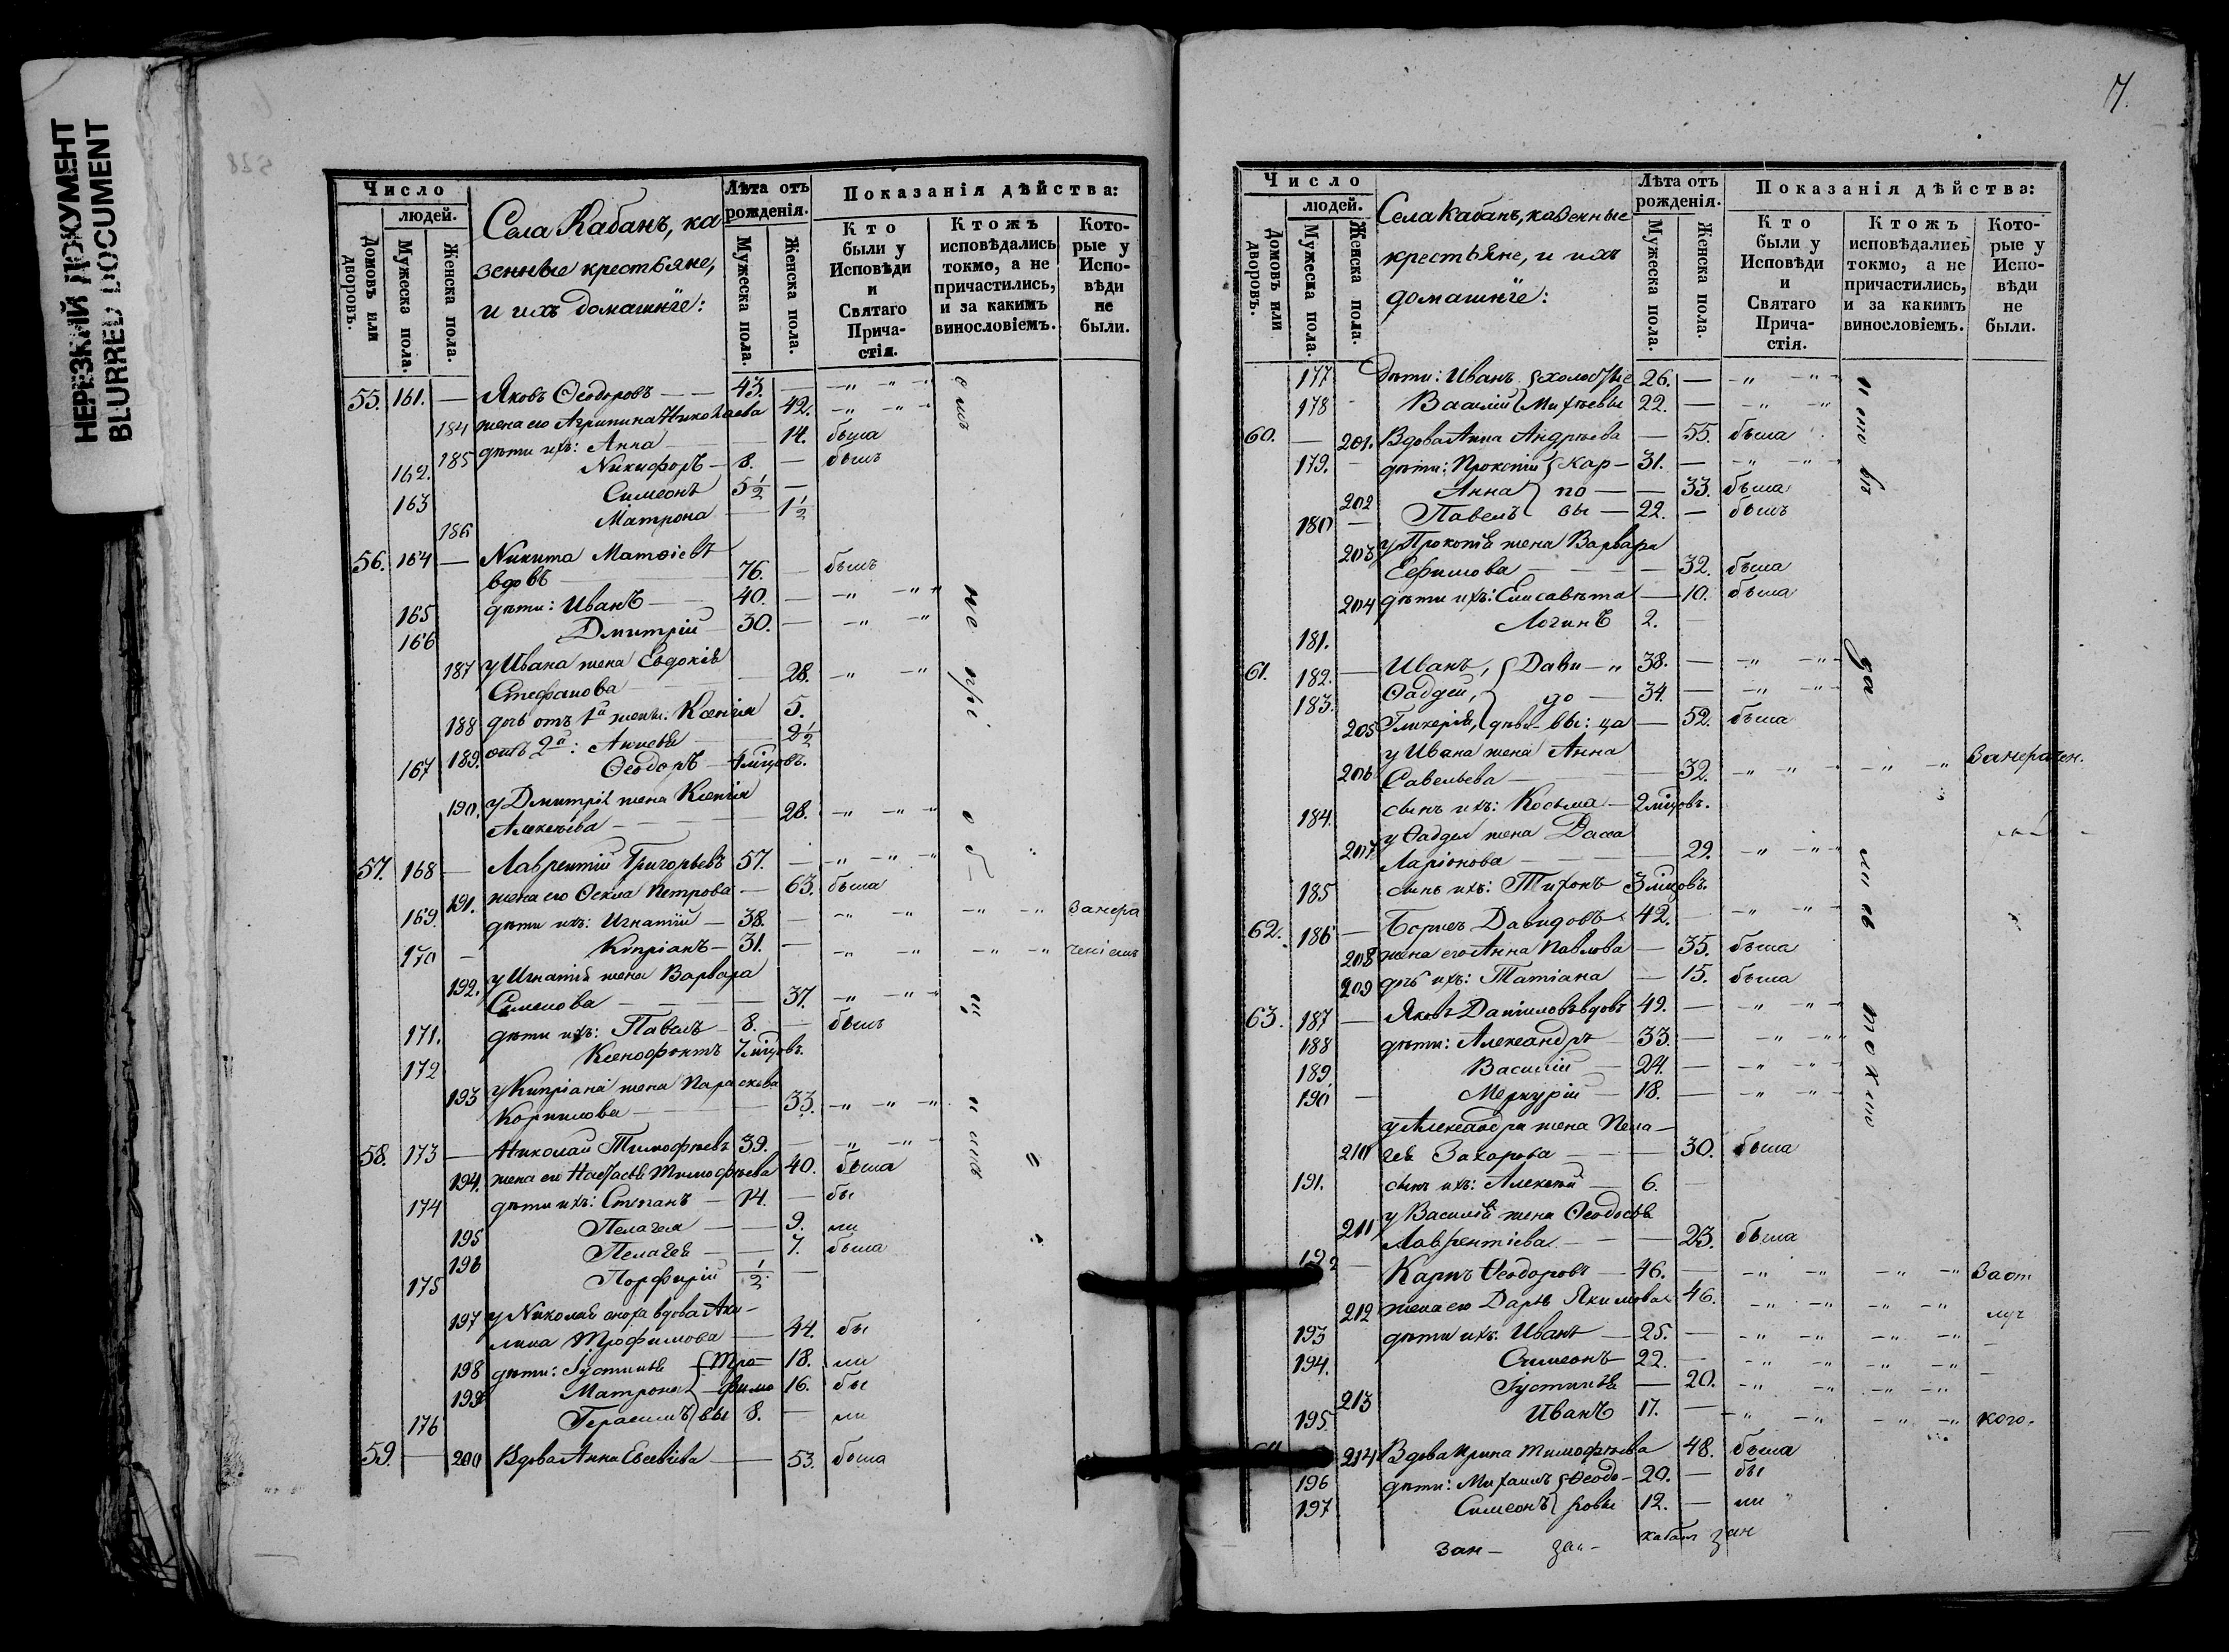 НЕРЕЗКИЙ ДОКУМЕНТ
BLURRED DOCUMENT
Число
людей.
Домовъ или дворовъ.
Мужеска пола.
Женска пола.
Села Кабанъ, ка
зенные крестьяне,
и ихъ домашніе:
Лѣта отъ рожденія.
Мужеска пола.
Женска пола.
Показанія дѣйства:
Кто были у Исповѣди и Святаго Причастія.
Ктожъ исповѣдались токмо, а не причастились, и за какимъ винословіемъ.
Которые у Исповѣди не были.
55. 161. — Яковъ Ѳеодоровъ — 43. —
184 жена его Агрипина Николаева 42.
185 дѣти ихъ: Анна — 14. была
162. Никифоръ — 8. — былъ
163 Симеонъ 5 1/2 —
186 Матрона — 1 1/2
56. 164 — Никита Матѳіевъ
вдовъ — 76. — былъ
165 дѣти: Иванъ — 40. —
166 Дмитрій 30. —
187 у Ивана жена Евдокія
Стефанова — 28.
188 дочь отъ 1й жены: Ксенія 5.
189. отъ 2й: — 2 1/2
167 Ѳеодоръ —
190. у Дмитрія жена Ксенія
Алексѣева — 28.
57. 168 — Лаврентій Григорьевъ 57. —
191. жена его Ѳекла Петрова — 63. была
169. дѣти ихъ: Игнатій — 38. — Занера
170 — Кипріанъ — 31. — ченіемъ
192. у Игнатія жена Варвара
Семенова — 37.
171. дѣти ихъ: Павелъ — 8. — былъ
172 Ксенофонтъ 7 мцовъ.
193 у Кипріана жена Параскева
Корнилова — 33.
58. 173 — Николай Тимофѣевъ 39. —
194. жена его Настасья Тимофѣева 40. была
174 дѣти ихъ: Степанъ — 14. — бы
195 Пелагея — 9. ли
196 Пелагея — 7. была
175 Порфирій 1/2 —
197 у Николая сноха вдова Аку-
лина Трофимова — 44. бы
198 дѣти: Іустинья Тро- 18. ли
199 Матрона фимо 16. бы
176 Герасимъ вы 8. — ли
59. — 200 Вдова Анна Евсевіева — 53. была
7.
Число
людей.
Домовъ или дворовъ.
Мужеска пола.
Женска пола.
Села Кабанъ, казенные
крестьяне, и ихъ
домашніе:
Лѣта отъ рожденія.
Мужеска пола.
Женска пола.
Показанія дѣйства:
Кто были у Исповѣди и Святаго Причастія.
Ктожъ исповѣдались токмо, а не причастились, и за какимъ винословіемъ.
Которые у Исповѣди не были.
177 дѣти: Иванъ холостые 26. —
178 — Василій Михѣевы 22. —
60. — 201. Вдова Анна Андрѣева — 55. была
179. — дѣти: Прокопій Кар- 31. —
202 Анна по — 33. была
180 — Павелъ вы — 22. — былъ
203 у Прокопія жена Варвара
Ефимова — 32. была
204 дѣти ихъ: Елисавета — 10. была
181. Логинъ 2. —
61. 182. — Иванъ, Дави- 38. —
183. Ѳаддей, до — 34. —
205 Гликерія, вы: — 52. была
206 у Ивана жена Анна
Савельева — 32. Занерачен.
184. сынъ ихъ: Косьма — 2 мцовъ.
207 у Ѳаддея жена Дарья
Ларіонова — 29.
185 сынъ ихъ: Тихонъ 3 мцовъ
62. 186 — Борисъ Давидовъ 42. —
208 жена его Анна Павлова — 35. была
209 дочь ихъ: Татіана — 15. была
63. 187 — Яковъ Даниловъ вдовъ 49. —
188 дѣти: Александръ 33. —
189 Василій — 24. —
190 — Меркурій — 18. —
у Александра жена Пела-
210 гея Захарова — 30. была
191. сынъ ихъ: Алексѣй — 6. —
у Василія жена Ѳеодосья
211 Лаврентіева — 23. была
192 — Карпъ Ѳеодоровъ — 46. — За от
212 жена его Дарья Якимова 46. луч
193 дѣти ихъ: Иванъ — 25. —
194. Симеонъ 22. —
213 Іустинья — 20.
195 Иванъ 17. — кого.
214 Вдова Ирина Тимофѣева 48. была
196 дѣти: Михаилъ Ѳеодо- 20. — бы
197 Симеонъ ровы 12. — ли